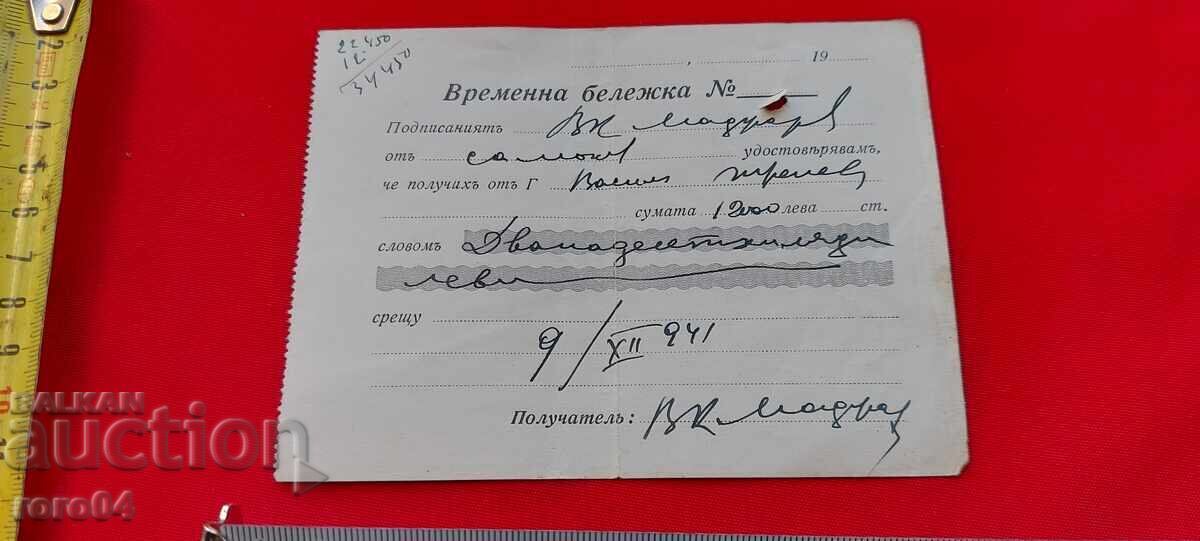 22 450
12
34 450
, 19
Временна бележка №
Подписаниятъ ВК Маджаров
отъ Самоков удостовѣрявамъ,
че получихъ отъ Г Васил
сумата 12000 лева ст.
словомъ Дванадесетхиляди
леви
срещу
9/XII 941
Получатель: ВК Маджаров
2
3
4
5
6
7
8
9
10
BALKAN
auction
roro04